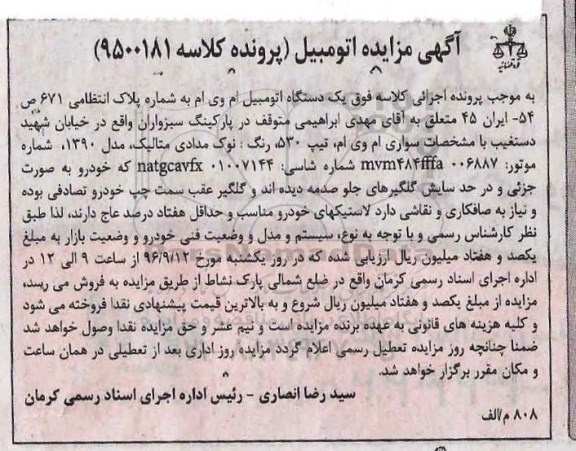 آگهی مزایده اتومبیل (پرونده کلاسه ۹۵۰۰۱۸۱)
به موجب پرونده اجرائی کلاسه فوق یک دستگاه اتومبیل ام وی ام به شماره پلاک انتظامی ۶۷۱ ص
۵۴- ایران ۴۵ متعلق به آقای مهدی ابراهیمی متوقف در پارکینگ سبزواران واقع در خیابان شهید
دستغیب با مشخصات سواری ام وی ام، تیپ ۵۳۰، رنگ : نوک مدادی متالیک، مدل ۱۳۹۰، شماره
موتور: mvm۴۸۴fffa ۰۰۶۸۸۷ شماره شاسی: natgcavfx ۰۱۰۰۷۱۴۴ که خودرو به صورت
جزئی و در حد سایش گلگیرهای جلو صدمه دیده اند و گلگیر عقب سمت چپ خودرو تصادفی بوده
و نیاز به صافکاری و نقاشی دارد لاستیکهای خودرو مناسب و حداقل هفتاد درصد عاج دارند، لذا طبق
نظر کارشناس رسمی و با توجه به نوع، سیستم و مدل و وضعیت فنی خودرو و وضعیت بازار به مبلغ
یکصد و هفتاد میلیون ریال ارزیابی شده که در روز یکشنبه مورخ ۹۶/۹/۱۲ از ساعت ۹ الی ۱۲ در
اداره اجرای اسناد رسمی کرمان واقع در ضلع شمالی پارک نشاط از طریق مزایده به فروش می رسد،
مزایده از مبلغ یکصد و هفتاد میلیون ریال شروع و به بالاترین قیمت پیشنهادی نقدا فروخته می شود
و کلیه هزینه های قانونی به عهده برنده مزایده است و نیم عشر و حق مزایده نقدا وصول خواهد شد
ضمنا چنانچه روز مزایده تعطیل رسمی اعلام گردد مزایده روز اداری بعد از تعطیلی در همان ساعت
و مکان مقرر برگزار خواهد شد.
سید رضا انصاری - رئیس اداره اجرای اسناد رسمی کرمان
۸۰۸ م/الف